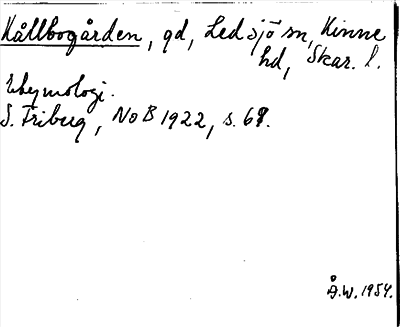 Kållbogården, gd, Ledsjö sn, Kinne
hd, Skar. l.
Etymologi.
S. Friberg, NoB 1922, s. 68.
Å.W. 1954.